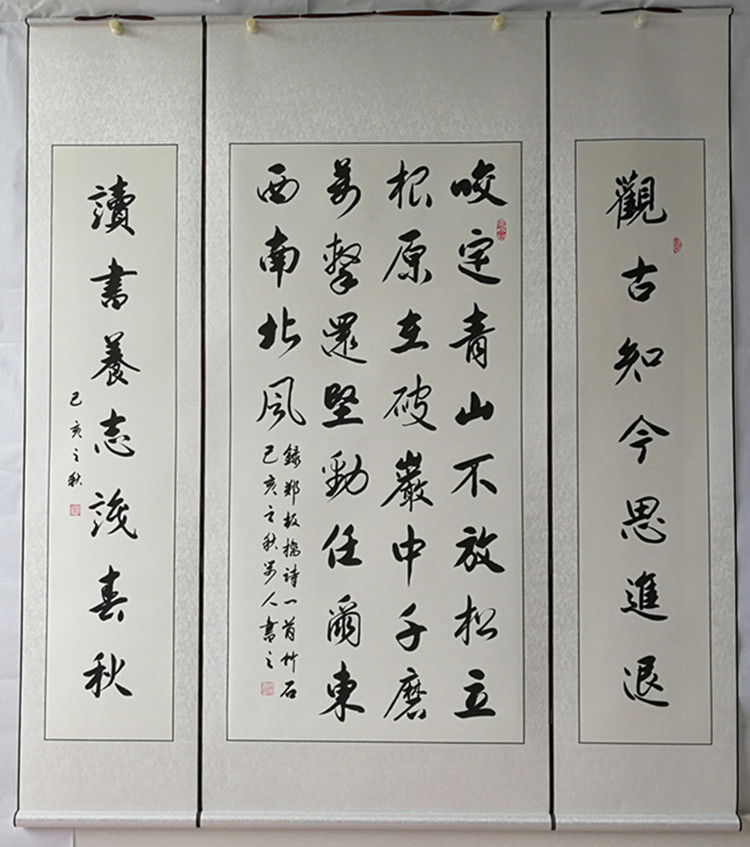 觀古知今思進退
咬定青山不放松立
根原在破巖中千磨
萬擊還堅勁任爾東
西南北風
録郑板橋诗一首竹石
己亥之秋人書之
讀書養志春秋
己亥之秋